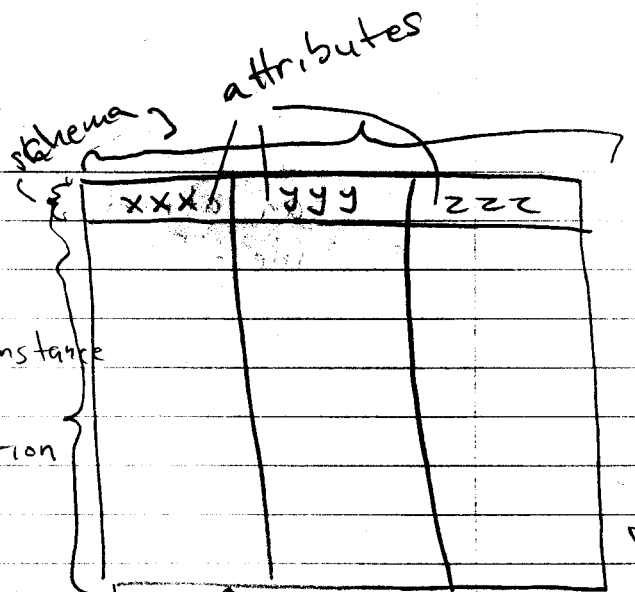 attributes
schema
xxx yyy zzz
nstance
tion